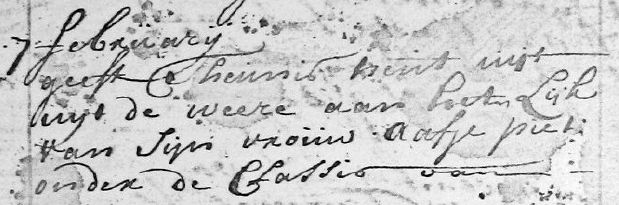 7 february
geeft Theunis kent uyt
uyt de weere aan het Lijk
van Sijn vrouw Aafje piet
onder de Classis van